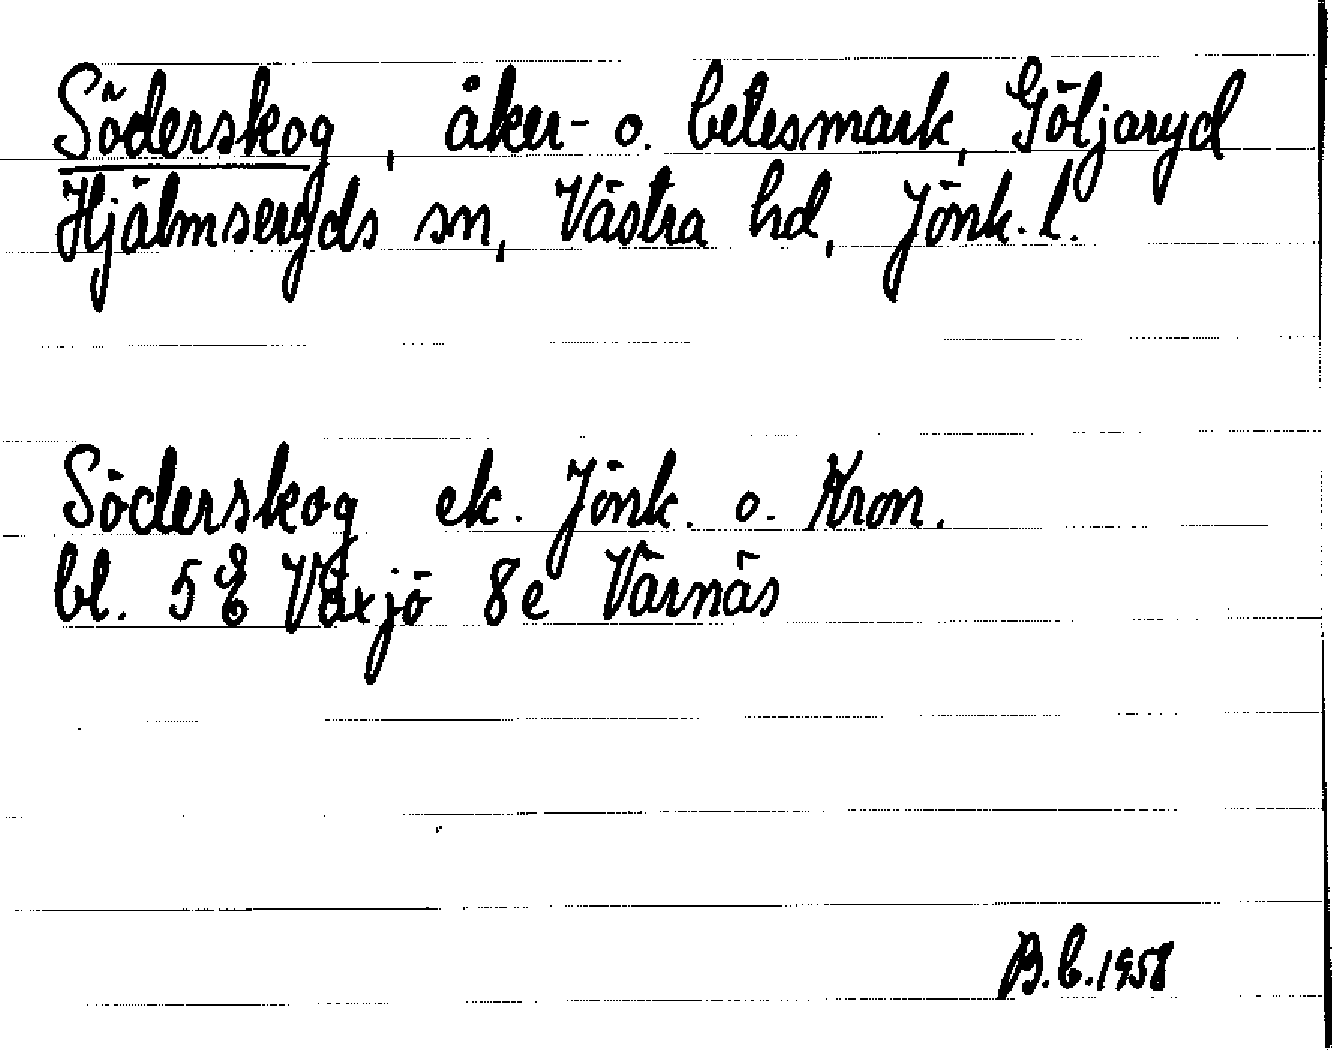 Söderskog, åker- o. betesmark, Göljaryd
Hjälmseryds sn, Västra hd, Jönk. l.
Söderskog ek. Jönk. o. Kron.
bl. 5 E Växjö 8e Värnäs
B.C. 1958